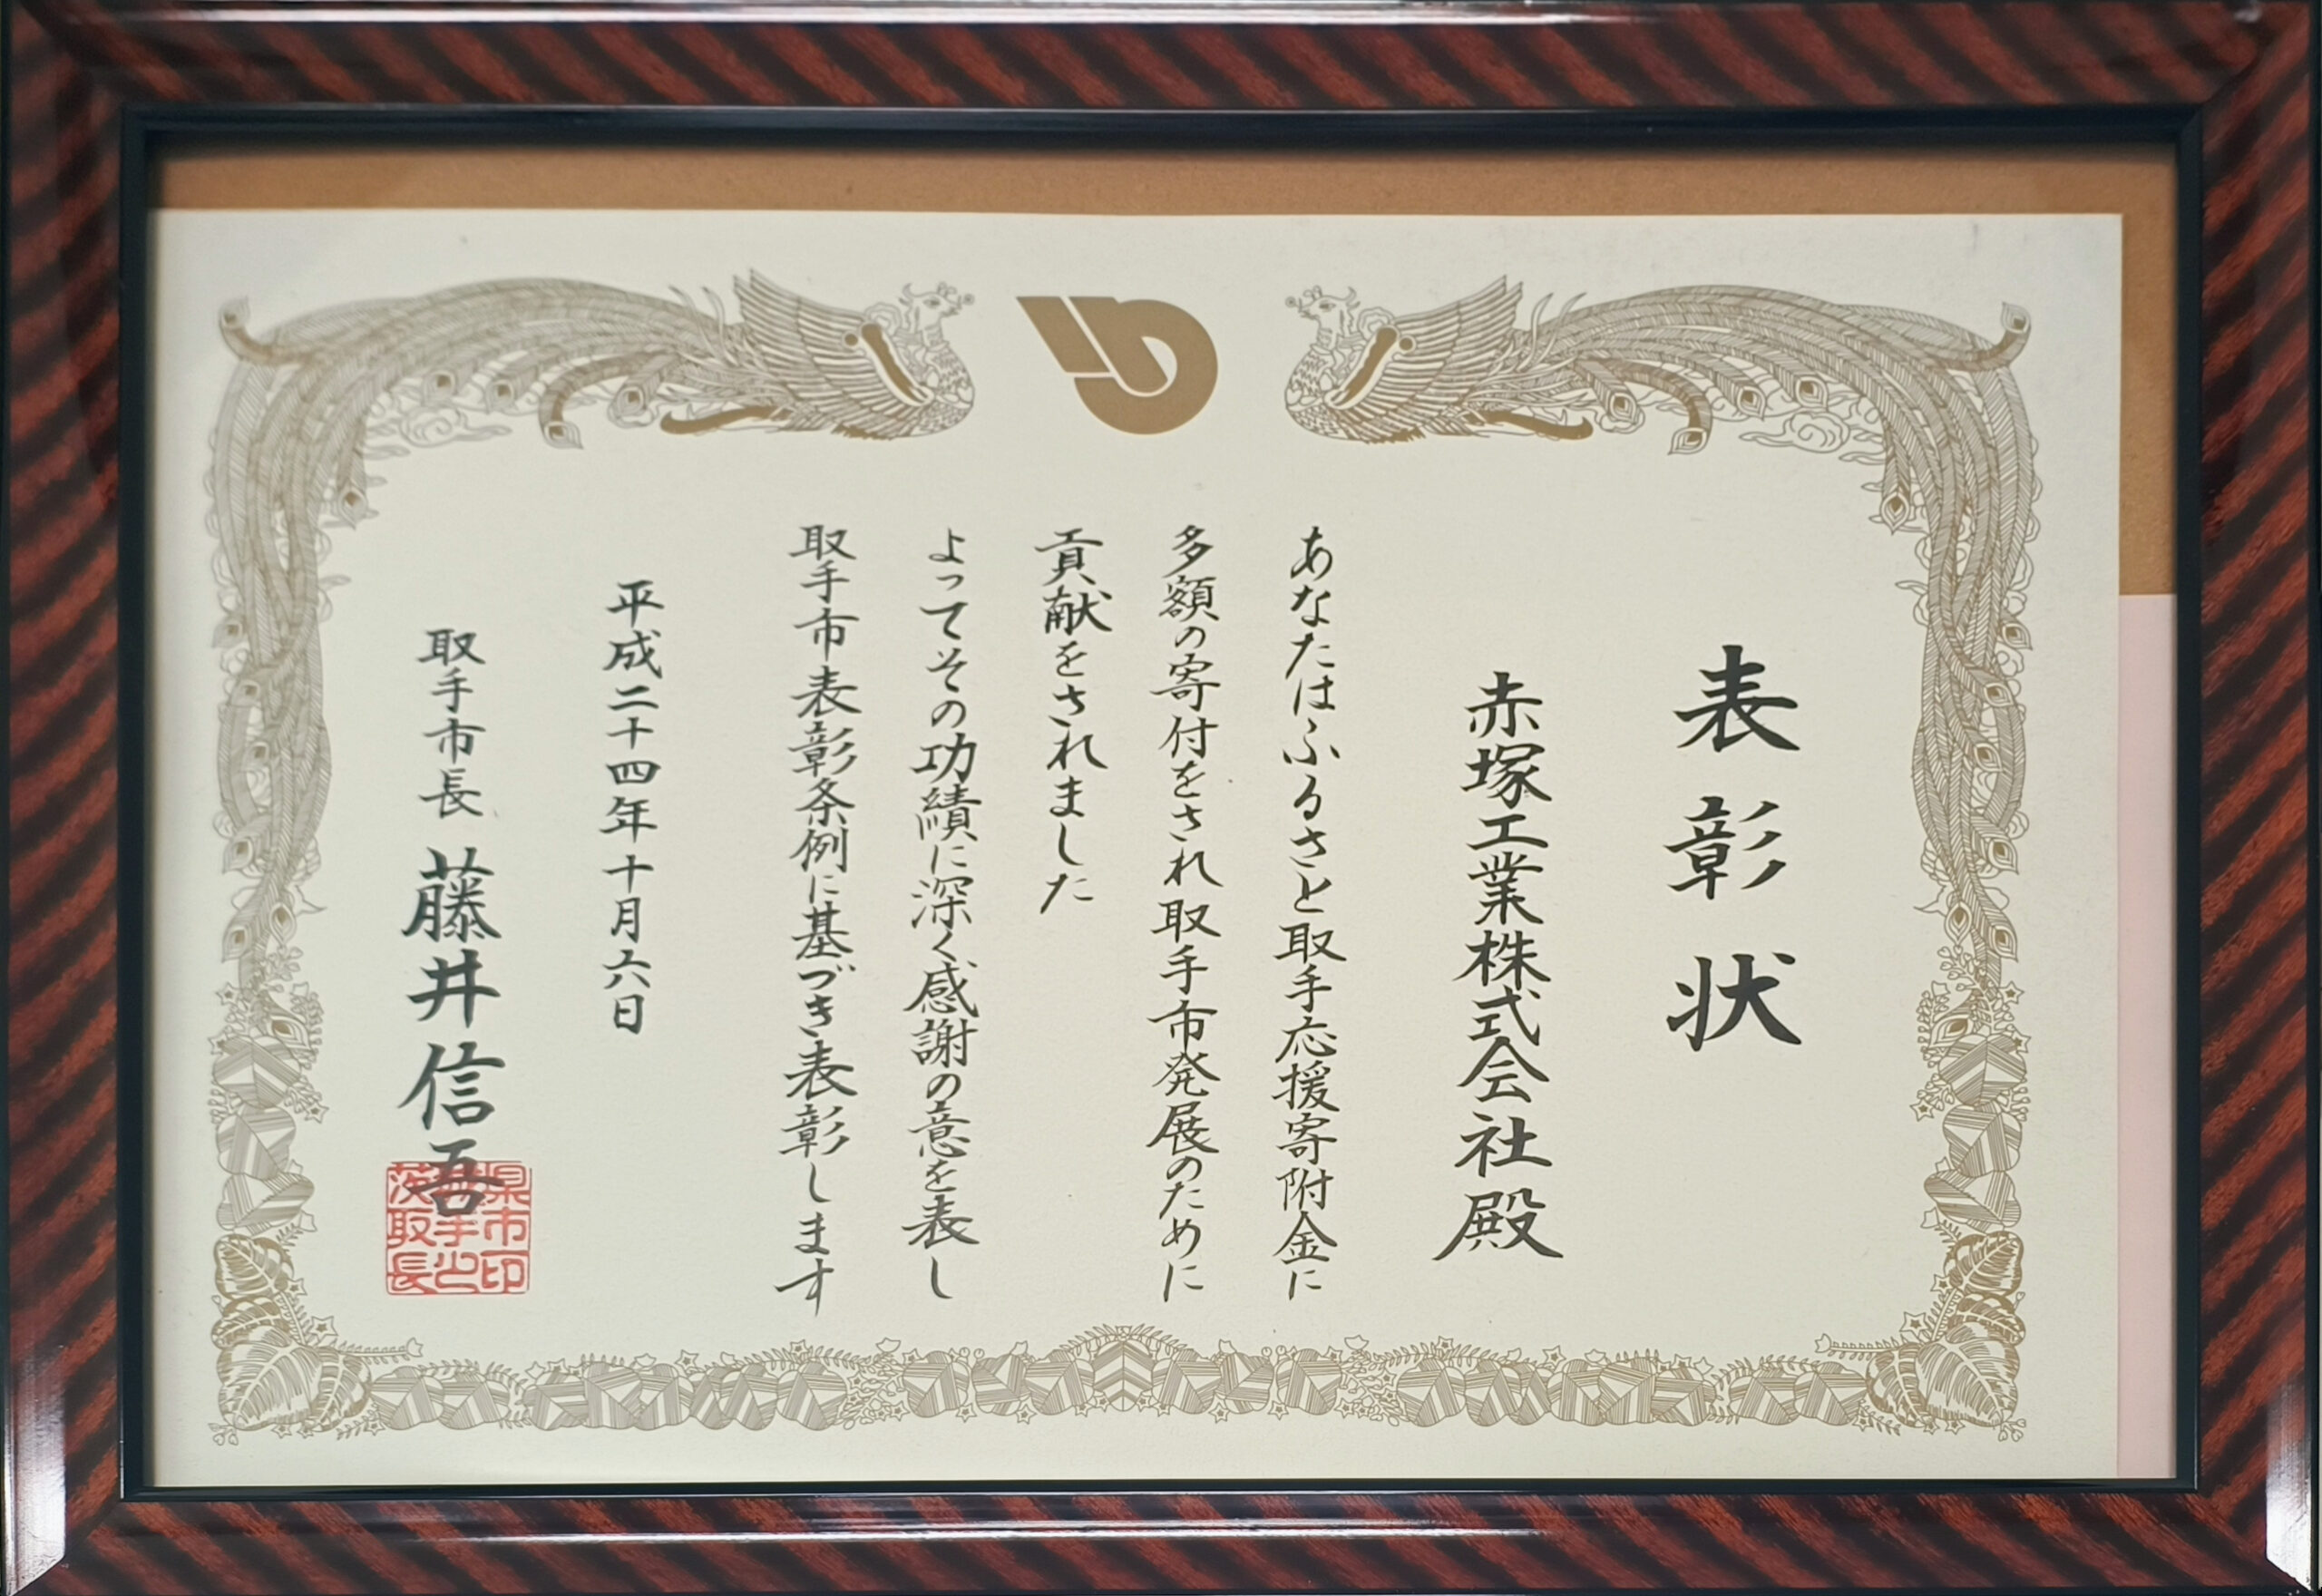 表彰状
赤塚工業株式会社殿
あなたはふるさと取手応援寄附金に
多額の寄付をされ取手市発展のために
貢献をされました
よってその功績に深く感謝の意を表し
取手市表彰条例に基づき表彰します
平成二十四年十月六日
取手市長 藤井信吾
茨城県
取手市
長之印